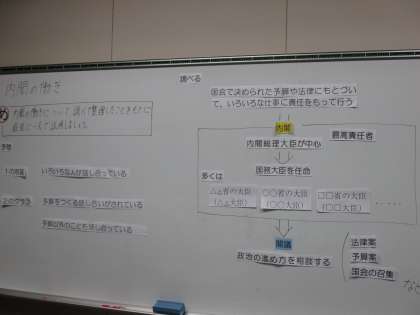 内閣の働き
め
内閣の働きについて調べて整理したことをもとに
予想
1の写真
いろいろなんか話し合っている
2のグラフ
予算をつくる話し合いがされている
予算以外のことも話し合っている
調べる
国会で決められた予算や法律にもとづい
て、いろいろな仕事に責任をもって行う
内閣
内閣総理大臣が中心
最高責任者
国務大臣を任命
多くは
△△省の大臣
(△△大臣)
○○省の大臣
(○○大臣)
□□省の大臣
(□□大臣)
・・・・・
閣議
政治の進め方を相談する
法律案
予算案
国会の召集